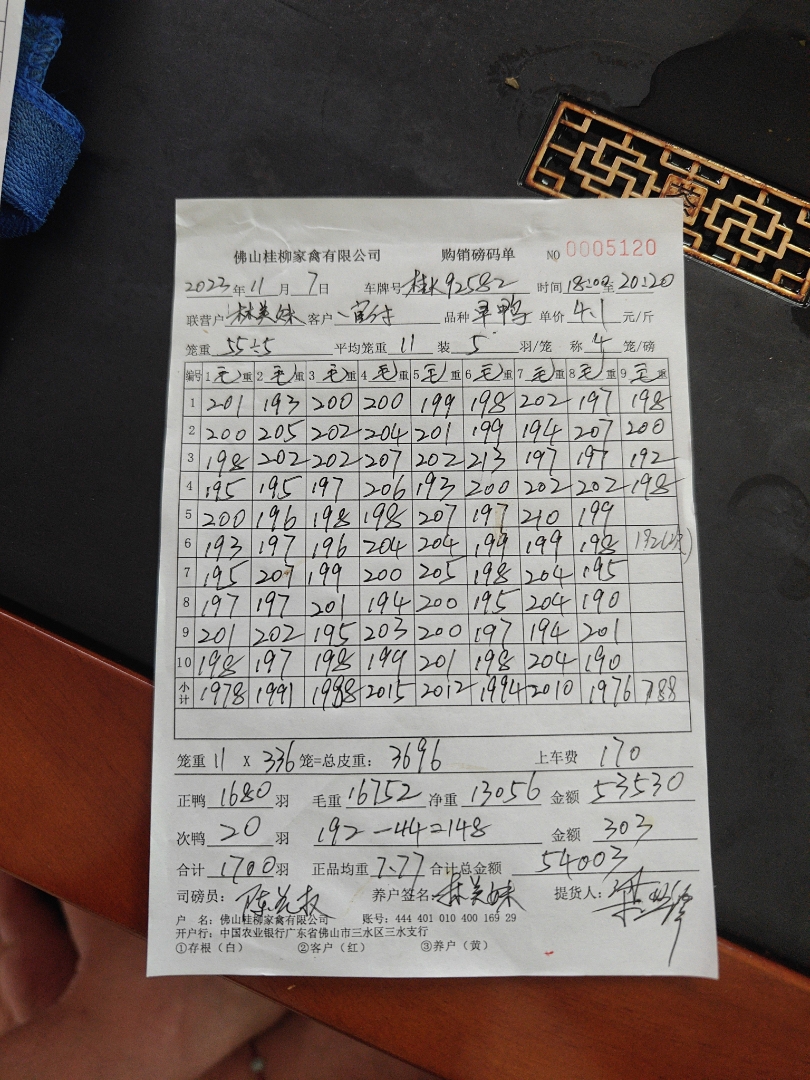 佛山桂柳家禽有限公司 购销磅码单 NO 0005120
2023年11月7日 车牌号 桂K92582 时间 18:00至20:20
联营户 林美妹 客户 品种 单价 4.1 元/斤
笼重 55÷5 平均笼重 11 装 5 羽/笼 称 4 笼/磅
编号 1 毛重 2 毛重 3 毛重 4 毛重 5 毛重 6 毛重 7 毛重 8 毛重 9 毛重
1 201 193 200 200 199 198 202 197 198
2 200 205 202 204 201 199 194 207 200
3 198 202 202 207 202 213 197 197 192
4 195 195 197 206 193 200 202 202 198
5 200 196 198 198 207 197 210 199
6 193 197 196 204 204 199 199 198 192(次)
7 195 207 199 200 205 198 204 195
8 197 197 201 194 200 195 204 190
9 201 202 195 203 200 197 194 201
10 198 197 198 199 201 198 204 190
小计 1978 1991 1988 2015 2012 1994 2010 1976 788
笼重 11 X 336 笼=总皮重: 3696 上车费 170
正鸭 1680 羽 毛重 16752 净重 13056 金额 53530
次鸭 20 羽 192-44=148 金额 303
合计 1700 羽 正品均重 7.77 合计总金额 54003
司磅员: 养户签名: 林美妹 提货人:
户 名: 佛山桂柳家禽有限公司 账号: 444 401 010 400 169 29
开户行: 中国农业银行广东省佛山市三水区三水支行
①存根(白) ②客户(红) ③养户(黄)